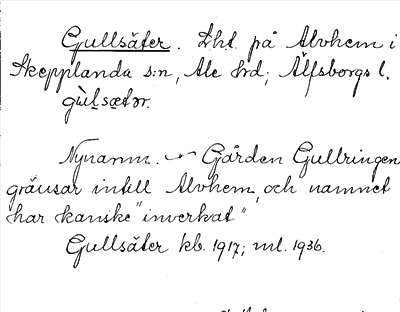 Gullsäter. Lht. på Alvhem i
Skepplanda s:n, Ale hrd; Älfsborgs l.
gùl̥sætər.
Nynamn. ~ Gården Gullringen
gränsar intill Alvhem, och namnet
har kanske "inverkat"
Gullsäter kb. 1917; ml. 1936.